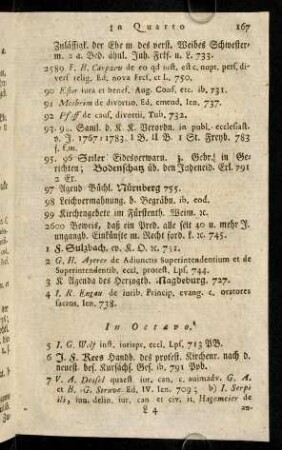 in Quarto 167
Zulässigk. der Ehe m des verst. Weibes Schwester-
m. 2 a. Bed. ähnl. Inh. Frfs. u. L. 733.
2589 F. H. Carpzou de eo qd iust. est c. nupt. pers. di
versi relig. Ed. nova Frcf. et L. 750.
90 Estor iura et benef. Aug. Conf. etc. ib. 731.
91 Mosheim de divortio. Ed. emend. Ien. 737.
92 Pfaff de caus. divertii, Tub. 732.
93. 94. Saml. d. K. K. Verordn. in publ.-ecclesiast.
v. J. 1767-1783. 1 B. II B. 1 St. Freyb. 783
f. f. m.
95. 96 Seiler Eideverwarn. z. Gebr. in Ge-
richten; Bodenschatz üb. den Judeneid. Erl. 791
2 Ex.
97 Agend Büchl. Nürnberg 755.
98 Leichvermahnung. b. Begräbn. ib. eod.
99 Kirchengebete im Fürstenth. Weim. ꝛc.
2600 Beweis, daß ein Pred. alle seit 40 u. mehr J.
ungangb. Einkünfte m. Recht ford. k. ꝛc. 745.
1 F. Sulzbach. ev. K. O. ꝛc. 731.
2 G. H. Ayrer de Adiunctis Superintendentium et de
Superintendentib. eccl. protest. Lps. 744.
3 K Agenda des Herzogth. Magdeburg. 727.
4 I. R. Engau de iurib. Princip. evang. c. oratores
sacros, Ien. 738.
In Octavo.
5 I. G. Wolf inst. iurispr. eccl. Lps. 713 PB.
6 J. F. Kees Handb. des protest. Kirchenr. nach d.
neuest. bes. Kursächs. Ges. ib. 791 Ppb.
7 V. A. Desel quaest iur. can. c. animadv. G. A.
et B. G. Struve. Ed. IV. Ien. 709; b) I. Serpi-
lii, iun. delin. iur. can et civ. it. Hagemeier de
L 4 ad-